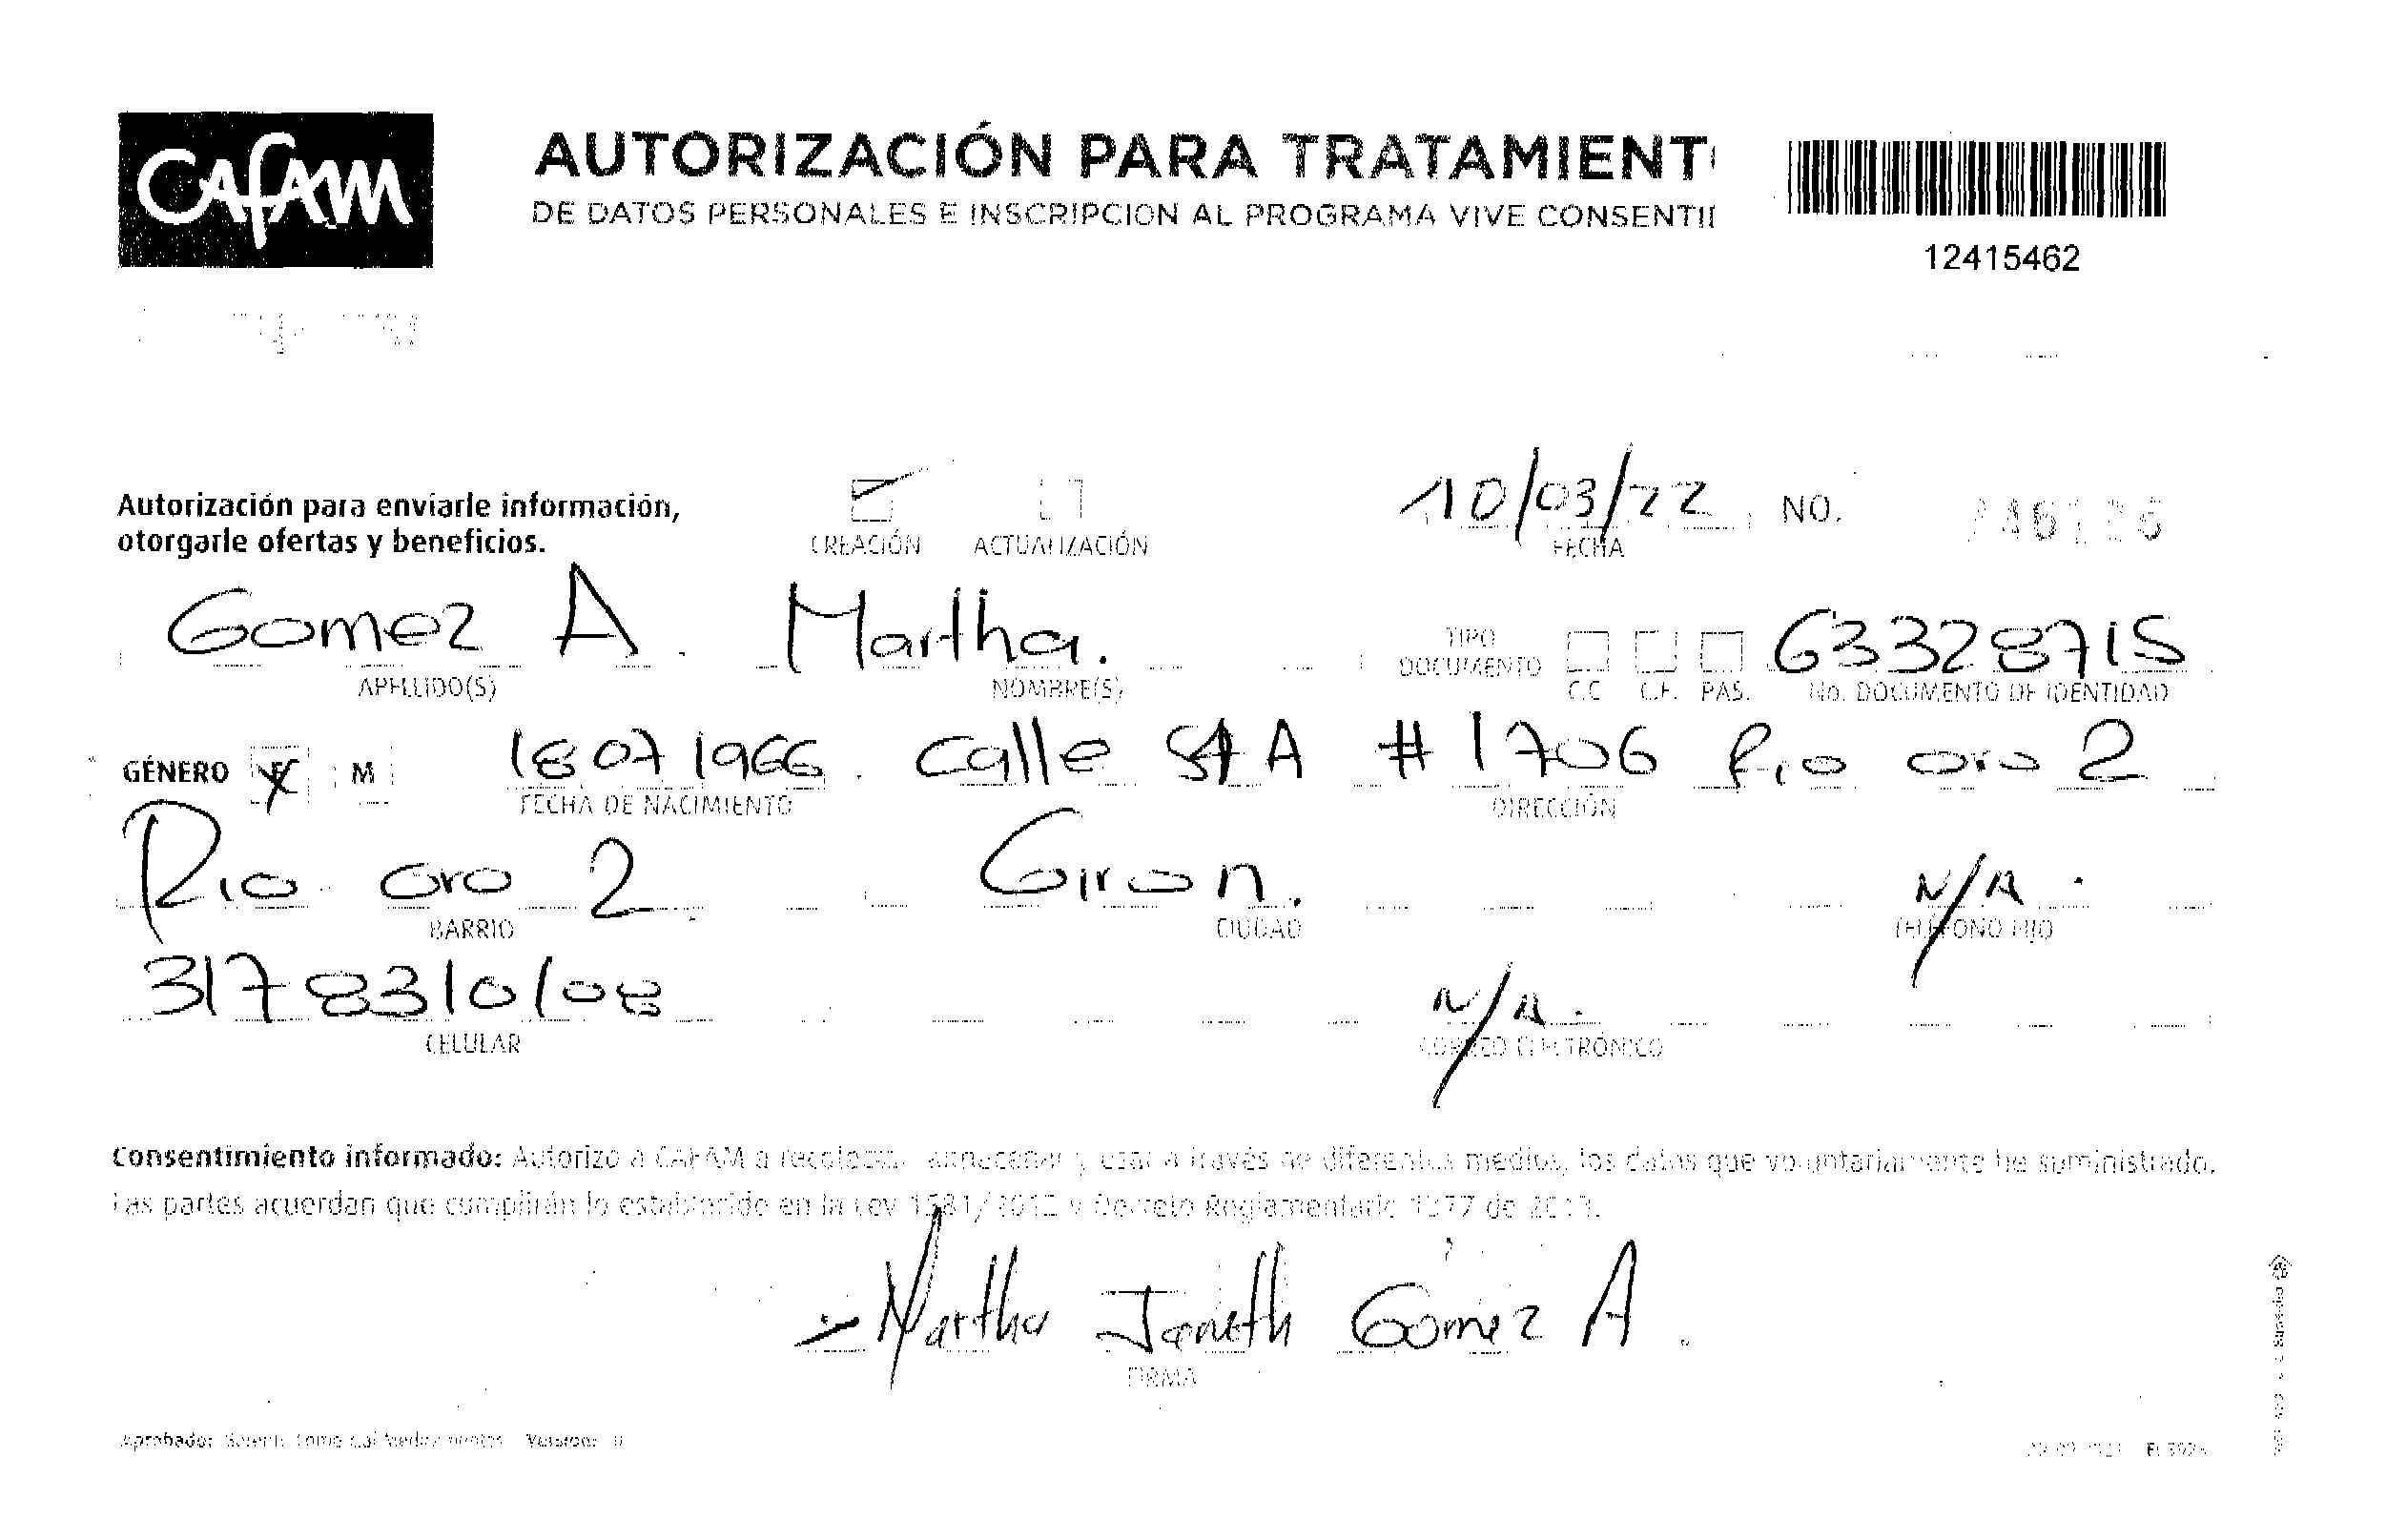 CAFAM
AUTORIZACIÓN PARA TRATAMIENT
DE DATOS PERSONALES E INSCRIPCION AL PROGRAMA VIVE CONSENTI
12415462
Autorización para enviarle información,
otorgarle ofertas y beneficios.
CREACIÓN ACTUALIZACIÓN
10/03/22
FECHA
NO.
Gomez A. Martha. 63328715
APELLIDO(S) NOMBRE(S) TIPO DOCUMENTO C.C C.E. PAS. No. DOCUMENTO DE IDENTIDAD
GÉNERO F M 18 07 1966. Calle A # 1706 Rio oro 2
FECHA DE NACIMIENTO DIRECCIÓN
Rio oro 2 Giron. N/A.
BARRIO CIUDAD TELÉFONO FIJO
317 8310108 N/A.
CELULAR CORREO ELECTRÓNICO
Consentimiento informado: Autorizo a CAFAM a recolectar, almacenar y usar a través de diferentes medios, los datos que voluntariamente he suministrado.
Las partes acuerdan que cumplirán lo establecido en la Ley 1581/2012 y Decreto Reglamentario 1377 de 2013.
Martha Janeth Gomez A.
FIRMA
Aprobado: Versión: